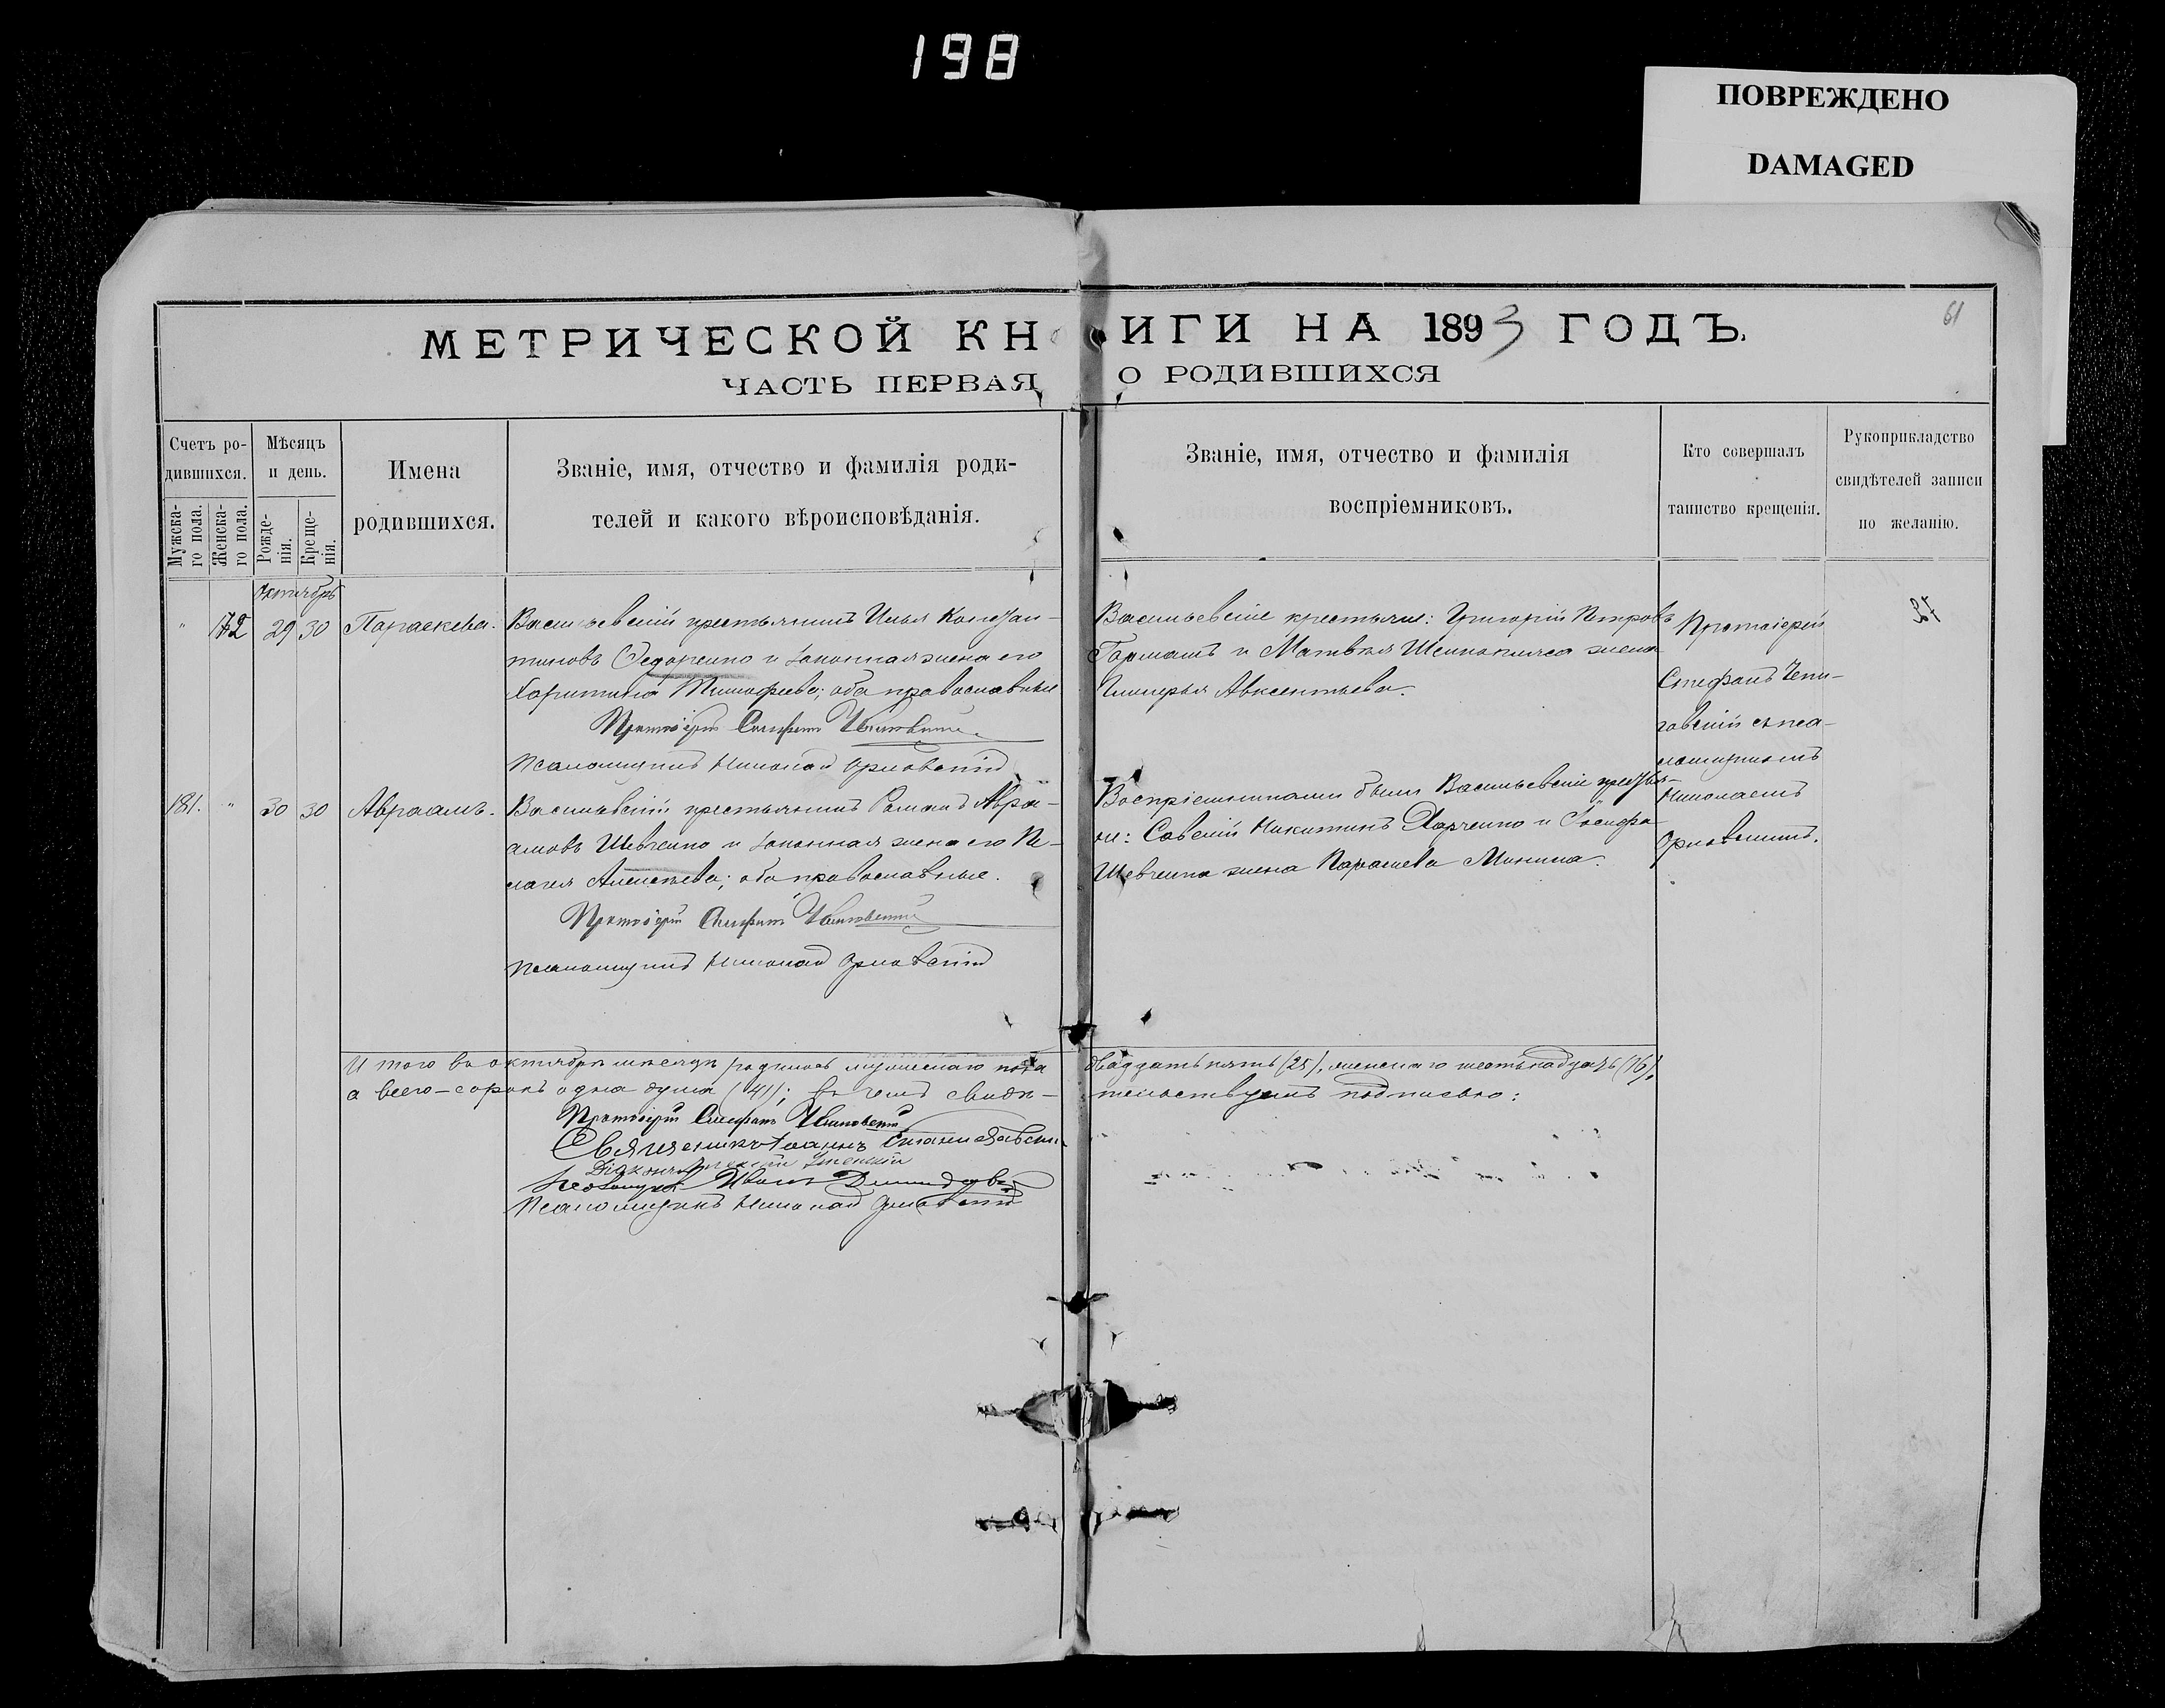 198
ПОВРЕЖДЕНО
DAMAGED
61
МЕТРИЧЕСКОЙ КНИГИ НА 1893 ГОДЪ.
ЧАСТЬ ПЕРВАЯ О РОДИВШИХСЯ
Счетъ ро-
дившихся.
Мужска-
го пола.
Женска-
го пола.
Мѣсяцъ
и день.
Рожде-
нія.
Креще-
нія.
Имена
родившихся.
Званіе, имя, отчество и фамилія роди-
телей и какого вѣроисповѣданія.
Званіе, имя, отчество и фамилія
воспріемниковъ.
Кто совершалъ
таинство крещенія.
Рукоприкладство
свидѣтелей записи
по желанію.
Октябрь
" 72 29 30 Параскева.
Васильевскій крестьянинъ Илья Констан-
тиновъ Федоренко и законная жена его
Харитина Тимофеева; оба православные
Протоіерей Стефанъ
Псаломщикъ Николай Орловскій
Васильевскіе крестьяне: Григорій Петровъ
Гармашъ и Матвѣя жена
Гликерья Авксентьева.
Протоіерей
Стефанъ
съ пса-
ломщикомъ
Николаемъ
Орловскимъ.
27
181. " 30 30 Авраамъ.
Васильевскій крестьянинъ Романъ Авра-
амовъ Шевченко и законная жена его Пе-
лагея Алексѣева; оба православные.
Протоіерей Стефанъ
Псаломщикъ Николай Орловскій
Воспріемниками были Васильевскіе крестья-
не: Савелій Никитинъ Харченко и Іосифа
Шевченка жена Параскева Минина.
Итого въ октябрѣ мѣсяцѣ родилось мужескаго пола
двадцать пять (25), женскаго шестьнадцать (16),
а всего – сорокъ одна душа (41); въ чемъ свидѣ-
тельствуемъ подписью:
Протоіерей Стефанъ
Священникъ Іоаннъ
Діаконъ
Псаломщикъ Иванъ
Псаломщикъ Николай Орловскій